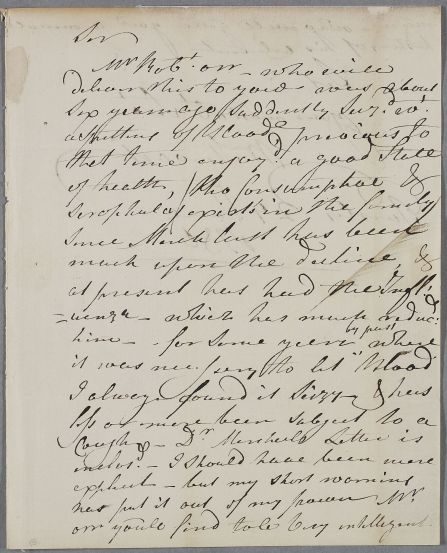 Sir
Mr Robt. Orr - who will
deliver this to you - was about
Six years ago Suddenly Seiz'd wt.
a Spitting of Blood, previous to
that time enjoy'd a good State
of health, tho Consumption &
Scrophula exists in the family
Since March last has been
much upon the decline, &
at present has had the Infl-
-uenza - which has much reduc'd
him - for Some years by past where
it was necessary to let Blood
I always found it Sizzy - & has
less or more been Subject to a
Cough - Dr. Letter is
inclos'd - I Should have been more
explicit - but my Short warning
has put it out of my power Mr
Orr you'le find to be very intelligent